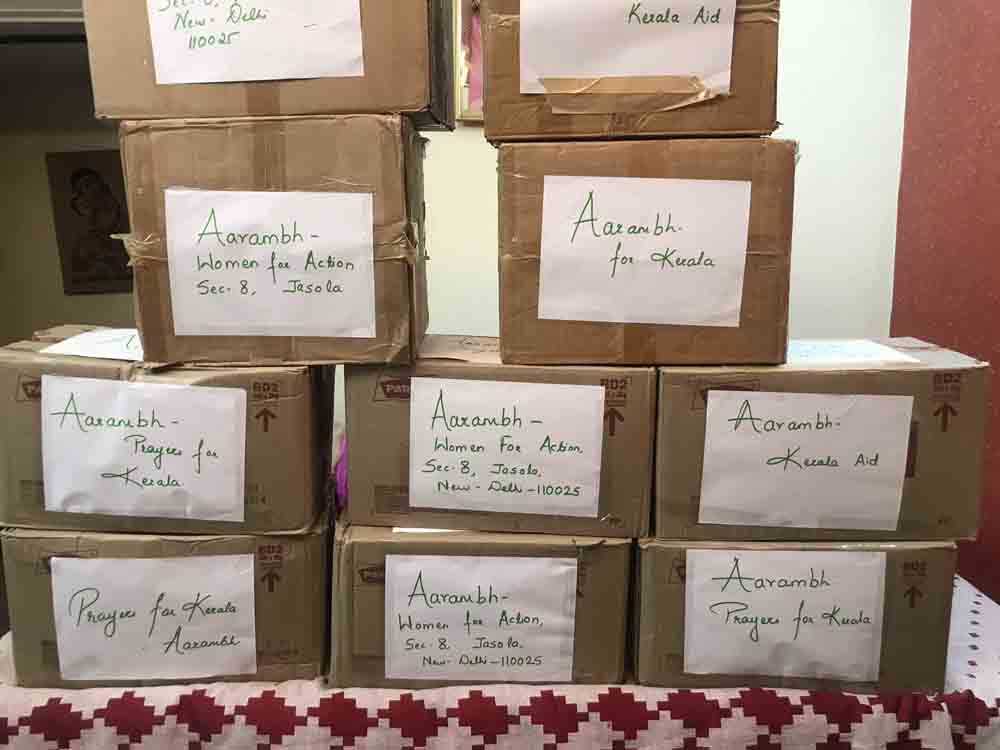 Sec. 8,
New- Delhi
110025
Kerala Aid
Aarambh-
Women for Action
Sec. 8, Jasola
Aarambh-
for Kerala
Aarambh -
Prayers for
Kerala.
BD2
Aarambh -
Women For Action,
Sec. 8, Jasola,
New- Delhi -110025
BD2
Aarambh-
Kerala Aid
BD2
Prayers for Kerala
Aarambh
BD2
Aarambh-
Women for Action,
Sec. 8, Jasola,
New- Delhi -110025
Aarambh
Prayers for Kerala
BD2